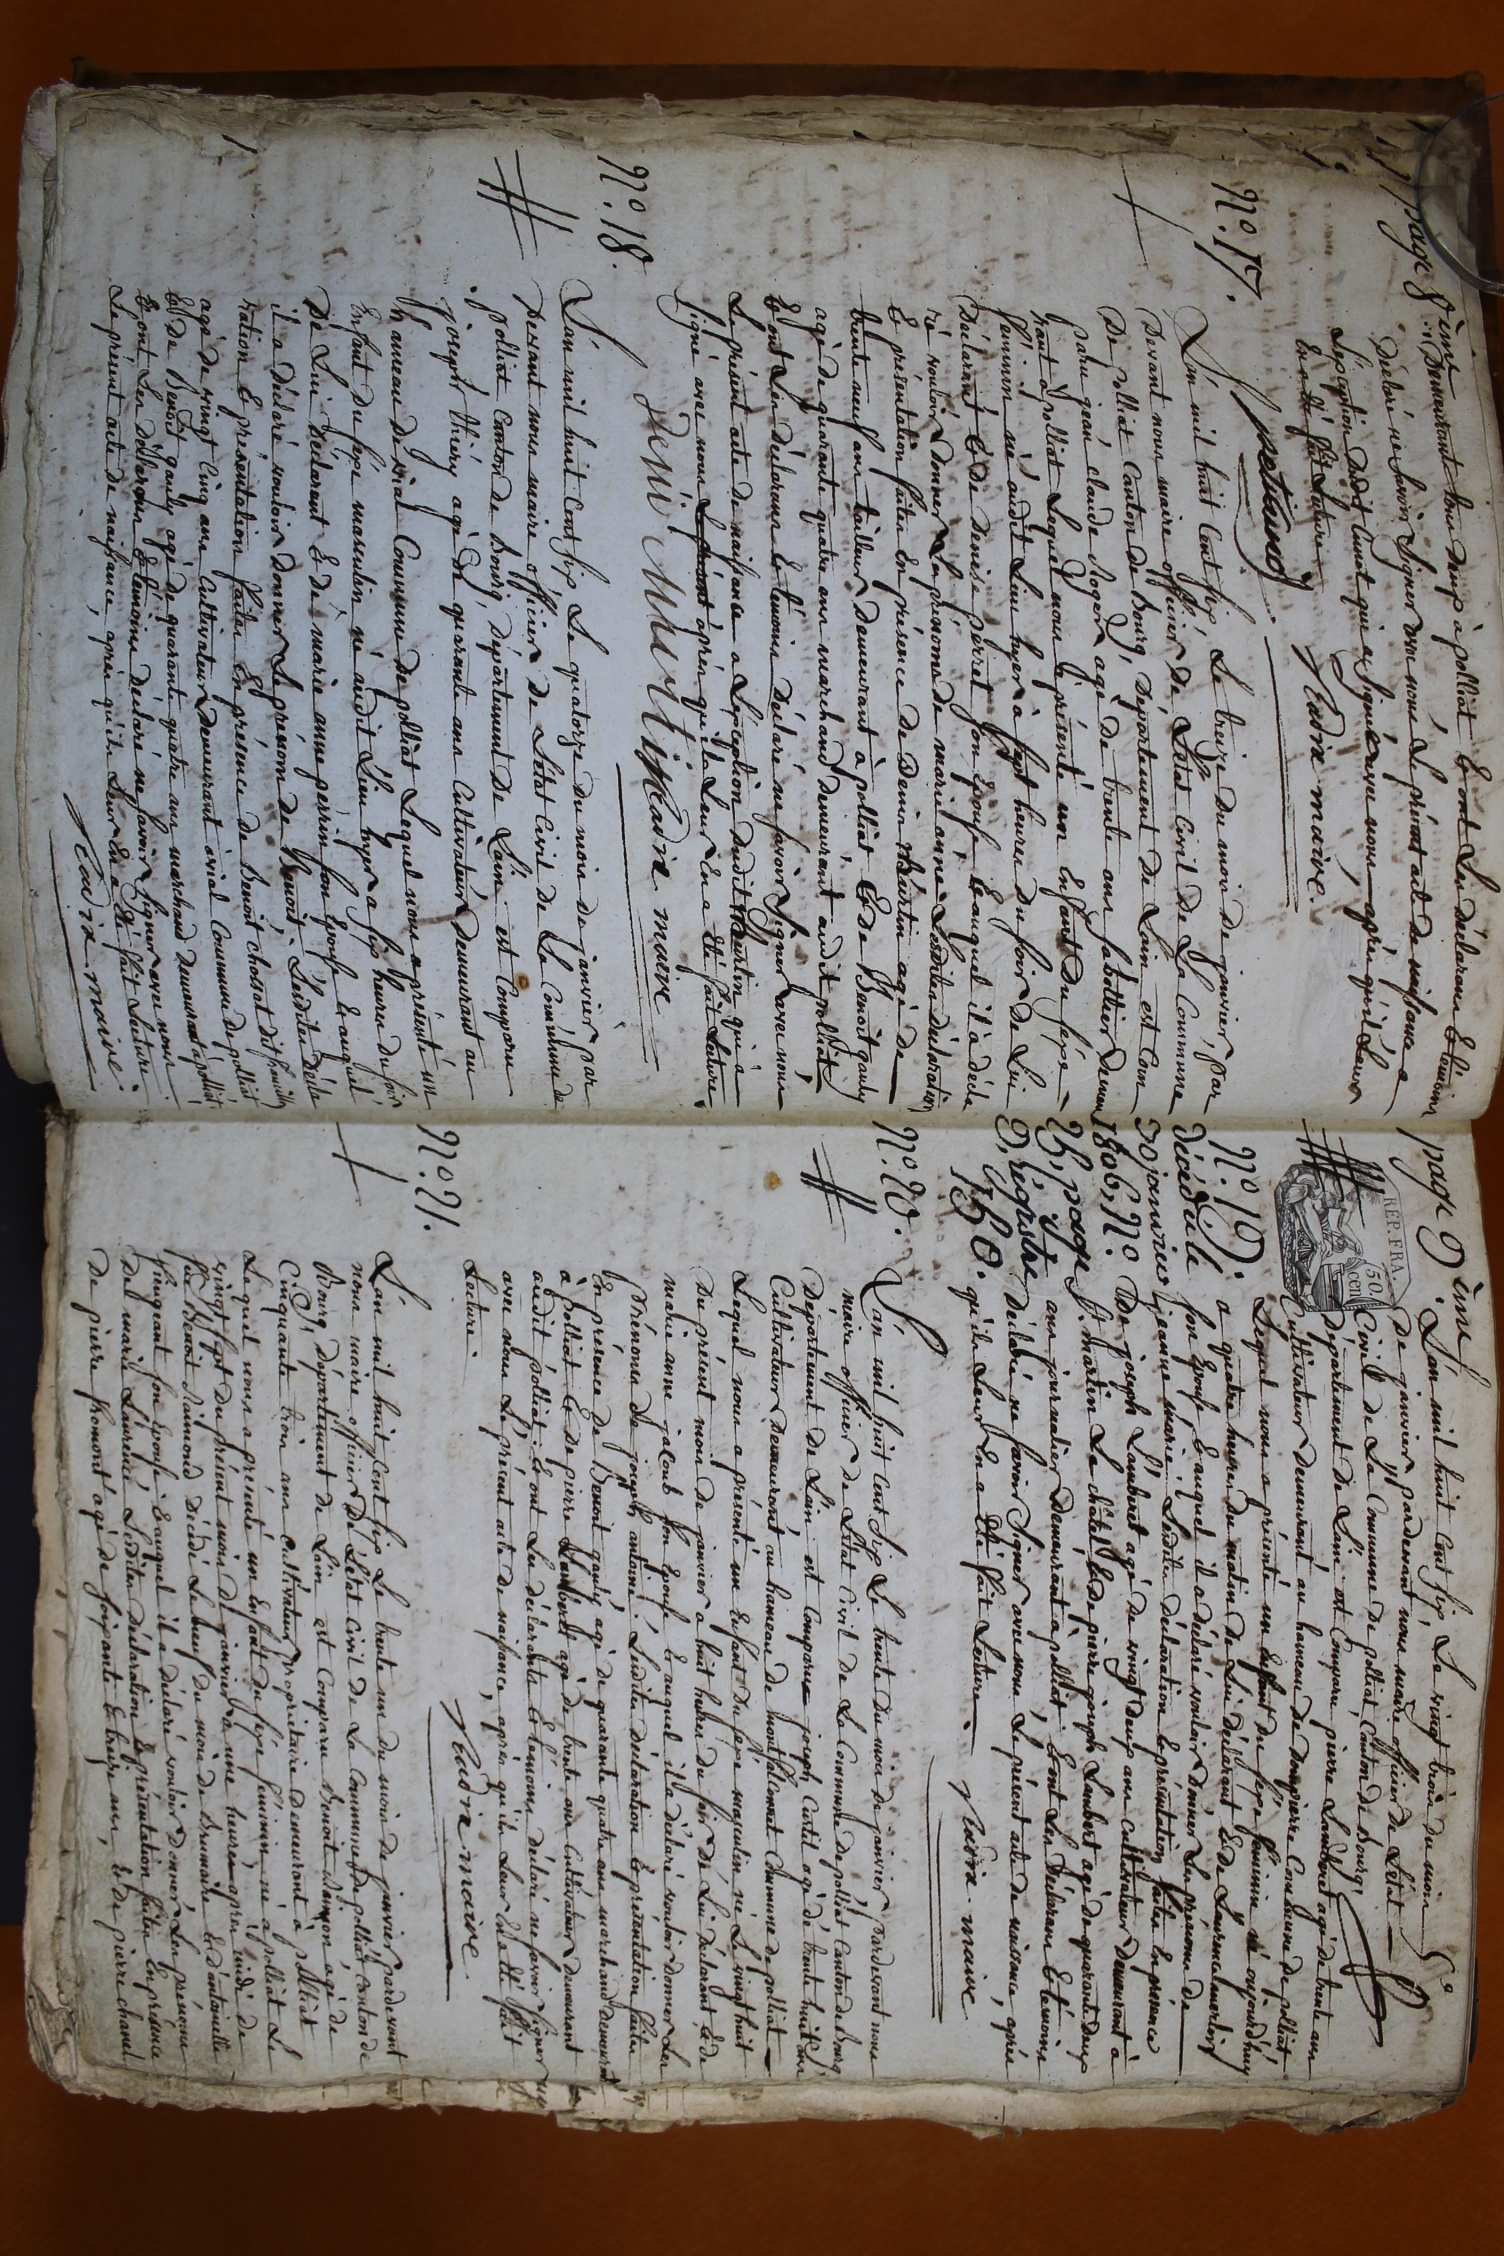 page 8ème
Demeurant tous deux à polliat Et ont Les déclarans Et témoins
déclaré ne savoir Signer avec nous Le présent acte de naissance a
Léxception dudit Cunot qui a Signé avec nous, après qu'il Leur
En a été fait Lecture
petiuno
Nadix maire.
N.º 17.
L'an mil huit Cent Six, Le treize du mois de janvier, par
Devant nous maire officier de L'état Civil de La Commune
De polliat Canton de Bourg, Département de Lain est Com
paru jean claude Roger agé de trente ans sabottier demeu
rant à polliat Lequel nous a présenté un Enfant du Sexe
féminin né audit Lieu hyer à Sept heures du soir de Lui
Déclarant Et de denise perret son Epouse Et auquel il a décla
ré vouloir donner Les prénoms de marie anne Lesdites déclaration
Et présentation faites En présence de denis Murtin agé de
trente neuf ans tailleur demeurant à polliat Et de Benoît gauly
agé de quarante quatre ans marchand demeurant audit polliat
Et ont Les déclarans Et témoins déclaré ne savoir Signer avec nous
Le présent acte de naissance a Léxception dudit Murtin qui a
Signé avec nous après qu'ils Leur En a été fait Lecture
Nadix maire
N.º 18.
L'an mil huit Cent Six Le quatorze du mois de janvier par
Devant nous maire officier de L'état Civil de La Commune de
polliat Canton de Bourg, département de L'ain est Comparu
joseph thiéry agé de quarante ans Cultivateur demeurant au
hameau de vial Commune de polliat Lequel nous a présenté un
Enfant du Sexe masculin né audit Lieu hyer a Six heures du soir
De Lui déclarant Et de marie anne perrin son Epouse Et auquel
il a déclaré vouloir donner Le prénom de Benoit. Lesdites décla
ration Et présentation faites En présence de Benoit chossat dit
agé de vingt Cinq ans Cultivateur Demeurant a vial Commune de polliat
Et de Benoit gauly agé de quarante quatre ans marchand demeurant à polliat
Et ont Les déclarans Et témoins déclaré ne savoir Signer avec nous
Le présent acte de naissance, après qu'ils Leur En a été fait Lecture
Nadix maire
page 9ème
REP. FRA.
50 cen
N.º 19.
décédé le
30 janvier
1806, Nº
25, page
9, régistre
150.
L'an mil huit Cent Six, Le vingt trois du mois
De janvier pardevant nous maire officier de L'état
Civil de La Commune de polliat Canton de Bourg,
Département de L'ain est Comparu pierre Lambert agé de trente ans
Cultivateur demeurant au hameau de Commune de polliat
Lequel nous a présenté un Enfant du Sexe féminin né aujourd'huy
a quatre heures du matin de Lui déclarant Et de
Son Epouse Et auquel il a déclaré vouloir donner Les prénoms de
jeanne marie. Lesdites déclaration Et présentation faites En présence
De joseph Lambert agé de vingt deux ans cultivateur demeurant à
St martin Le châtel, Et de pierre joseph Lambert agé de quarante deux
ans journalier demeurant à polliat Et ont Les déclarans Et témoins
déclaré ne savoir Signer avec nous Le présent acte de naissance, après
qu'ils Leur En a été fait Lecture
Nadix maire
N.º 20.
L'an mil huit Cent Six Le trente du mois de janvier pardevant nous
maire officier de L'état Civil de La Commune de polliat Canton de Bourg
Département de L'ain est Comparu joseph Curtil agé de trente huit ans
Cultivateur demeurant au hameau de montfalcon Commune de polliat
Lequel nous a présenté un Enfant du Sexe masculin né Le vingt huit
Du présent mois de janvier a huit heures du soir de Lui déclarant Et de
marie anne jacoub son Epouse Et auquel il a déclaré vouloir donner Les
prénoms de joseph antoine. Lesdites déclaration Et présentation faites
En présence de Benoit gauly agé de quarante quatre ans marchand demeurant
à polliat Et de pierre Lambert agé de trente ans Cultivateur demeurant
audit polliat. Et ont Les déclarans Et témoins déclaré ne savoir Signer
avec nous Le présent acte de naissance, après qu'ils Leur En a été fait
Lecture
Nadix maire
N.º 21.
L'an mil huit Cent Six Le trente un du mois de janvier pardevant
nous maire officier de L'état Civil de La Commune de polliat Canton de
Bourg, Département de L'ain est Comparu Benoit agé de
Cinquante trois ans Cultivateur propriétaire demeurant à polliat
Lequel nous a présenté un Enfant du Sexe féminin né a polliat Le
vingt Sept du présent mois de janvier a une heure apres midi de
feu Benoit décédé Le neuf du mois de Brumaire Et d'antoinette
son Epouse. Et auquel il a déclaré vouloir donner Les prénoms
De marie Laurence. Lesdites déclaration Et présentation faites En présence
De pierre agé de Soixante Et treize ans, Et de pierre chanel